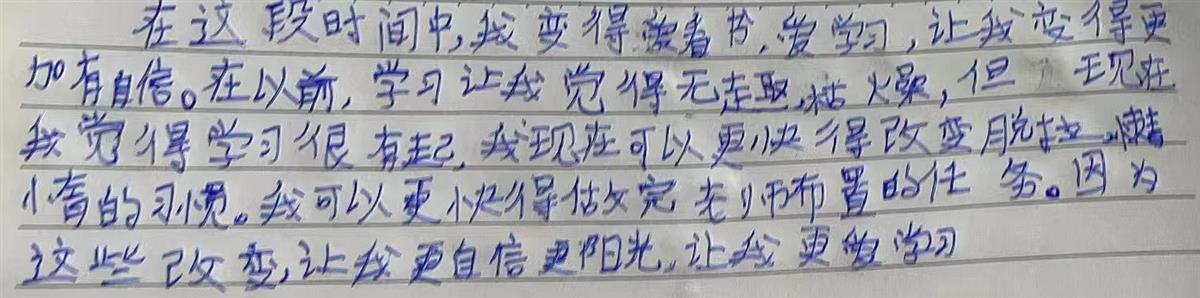 在这段时间中,我变得爱看书,爱学习,让我变得更
加有自信。在以前,学习让我觉得无走取,枯火燥,但现在
我觉得学习很有起,我现在可以更快得改变脱拉、懒
惰的习惯。我可以更快得做完老师布置的任务。因为
这些改变,让我更自信更阳光,让我更爱学习